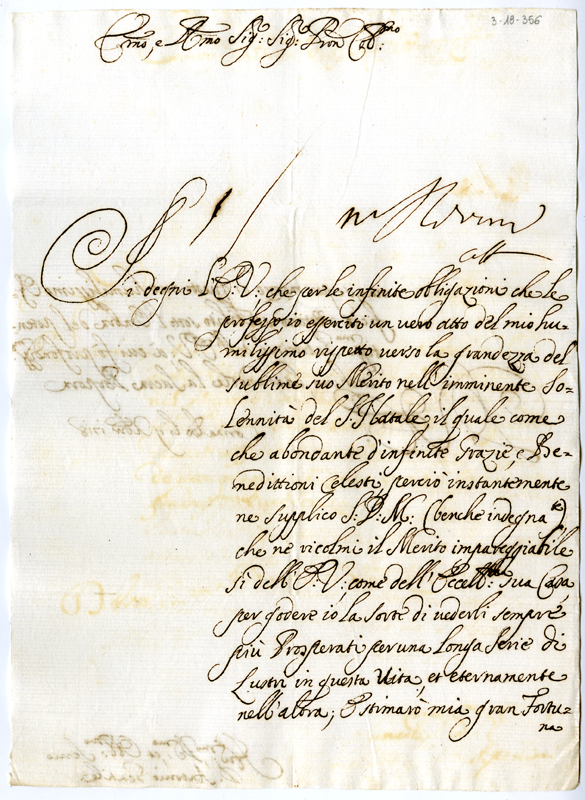 3-18-356
Emo, e Rmo Sig: Sig: Pron Col:mo
Si degni l'E: V: che per le infinite obligazioni che le
professo io eserciti un vero atto del mio hu-
milissimo rispetto verso la grandezza del
sublime suo Merito nell'imminente So-
lennità del S. Natale, il quale come
che abondante d'infinite Grazie, e Be-
nedittioni Celesti, perciò instantemente
ne supplico S: D: M: (benche indegna:te)
che ne ricolmi il Merito impareggiabile
si dell'E: V:, come dell'Eccell:ma Sua Casa,
per godere io la sorte di vederli sempre
più Prosperati per una longa Serie di
Lustri in questa Vita, et eternamente
nell'altra; Estimarò mia gran Fortu-
na